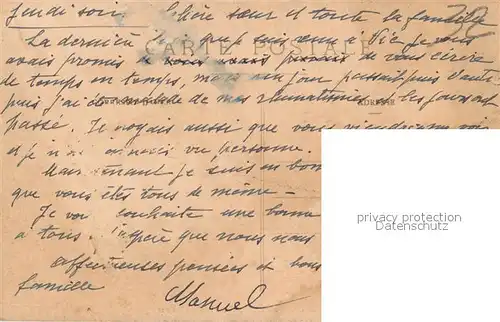 Jeudi soir Chère sœur et toute la famille
La dernière que je suis venu à Vic je vous
CARTE POSTALE
avais promis de vous écrire
de temps en temps, mais un jour passait puis l'autre
puis j'ai de mes rhumatismes les jours ont
ADRESSE
passé. Je croyais aussi que vous viendriez
et je n'ai vu personne.
Maintenant je suis en bon
que vous êtes tous de même -
Je vous souhaite une bonne
à tous. J'espère que nous nous
affectueuses pensées et bons
famille
Manuel
privacy protection
Datenschutz